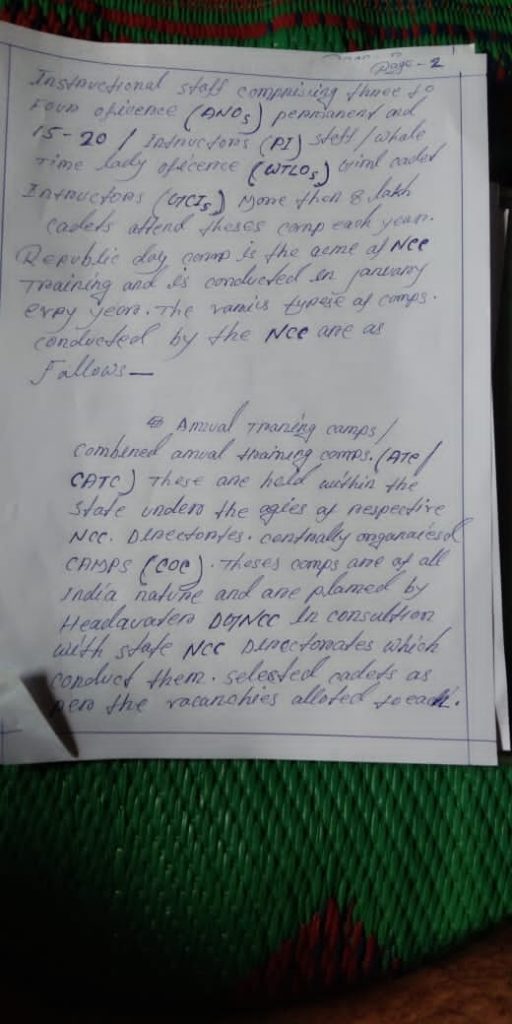 Page-2
Instructional staff comprising three to
Foun oficence (ANOs) penmanent and
15-20 / Intnuctons (PI) steff / whale
Time lady oficence (WTLOs) Giml cadet
Intnuctons (GCIs) More than 8 lakh
cadets attend theses camp each year.
Republic day comp is the acme of NCC
Training and is conducted in january
evpy year. The vanius typese of comps.
conducted by the NCC ane as
Fallows—
Annual Tnaning camps /
Combened annual tnaining comps. (ATC /
CATC) These ane held within the
State undero the agies of nespective
NCC. Dinectontes. centnally onganaiesd
CAMPS (COC). Theses comps ane of all
india natune and ane planned by
Headquatero DGNCC In consultion
with state NCC Dinectonates which
conduct them. selected cadets as
pero the vacanchies alloted to each.